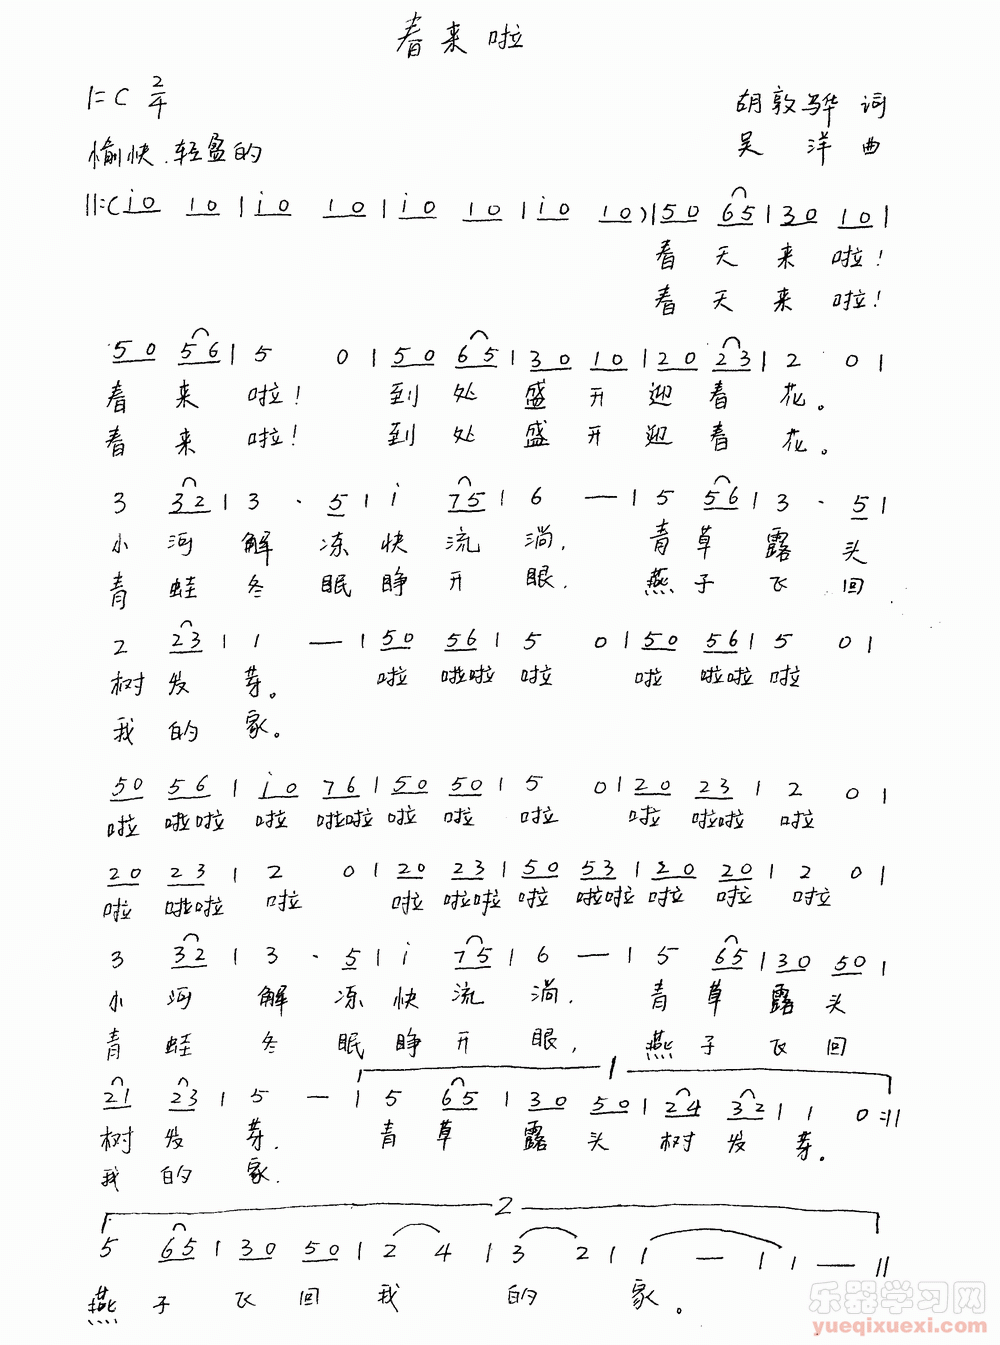 春来啦
1=C 2/4
胡敦骅 词
愉快、轻盈的
吴 洋 曲
||:(i0 10|i0 10|i0 10|i0 10)|50 65|30 10|
春 天 来 啦!
春 天 来 啦!
50 56|5 0|50 65|30 10|20 23|2 0|
春 来 啦! 到 处 盛 开 迎 春 花。
春 来 啦! 到 处 盛 开 迎 春 花。
3 32|3 · 5|i 75|6 —|5 56|3 · 5|
小 河 解 冻 快 流 淌, 青 草 露 头
青 蛙 冬 眠 睁 开 眼, 燕 子 飞 回
2 23|1 —|50 56|5 0|50 56|5 0|
树 发 芽。 啦 啦啦 啦 啦 啦啦 啦
我 的 家。
50 56|i0 76|50 50|5 0|20 23|2 0|
啦 啦啦 啦 啦啦 啦 啦 啦 啦 啦啦 啦
20 23|2 0|20 23|50 53|20 20|2 0|
啦 啦啦 啦 啦 啦啦 啦 啦啦 啦 啦 啦
3 32|3 · 5|i 75|6 —|5 65|30 50|
小 河 解 冻 快 流 淌, 青 草 露 头
青 蛙 冬 眠 睁 开 眼, 燕 子 飞 回
1
21 23|5 —|5 65|30 50|24 32|1 0:||
树 发 芽. 青 草 露 头 树 发 芽。
我 的 家.
2
5 65|30 50|2 4|3 2|1 —|1 —||
燕 子 飞 回 我 的 家。
乐器学习网
yueqixuexi.com